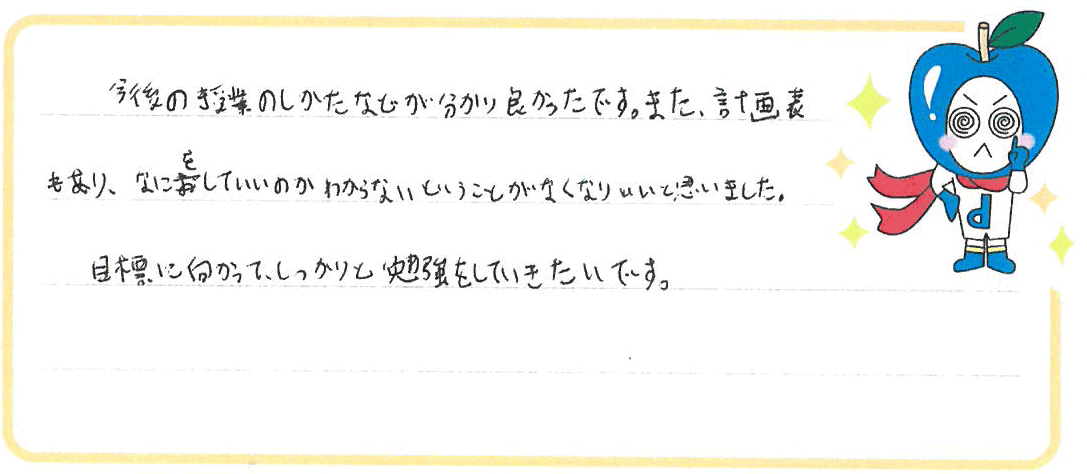 今後の授業のしかたなどが分かり良かったです。また、計画表
もあり、なにをしていいのかわからないということがなくなりいいと思いました。
目標に向かって、しっかりと勉強をしていきたいです。
d